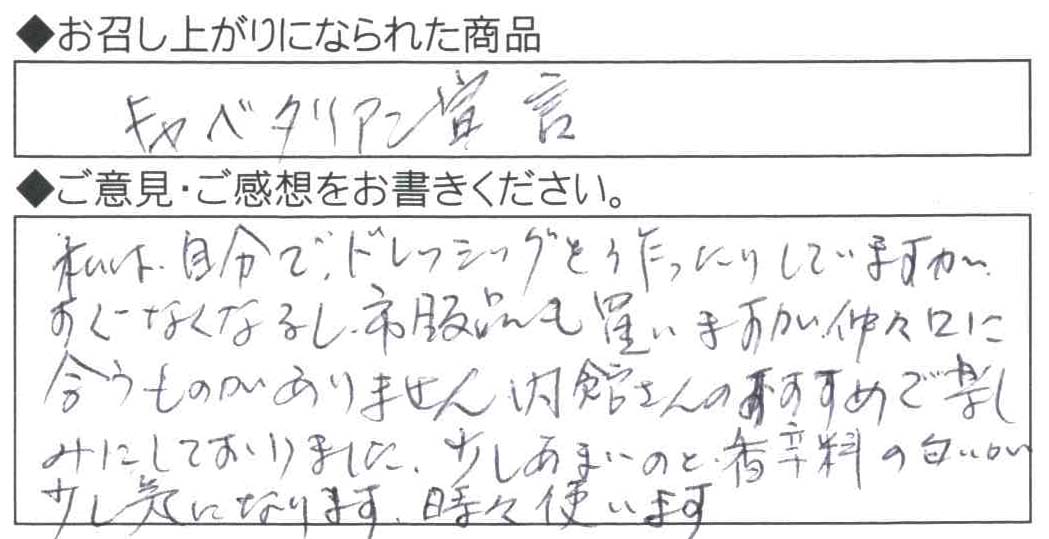 ◆お召し上がりになられた商品
キャベタリアン宣言
◆ご意見・ご感想をお書きください。
私は、自分で、ドレッシングを作ったりしていますが、
すぐなくなるし、市販品も買いますが、仲々口に
合うものがありません 内館さんのおすすめで楽し
みにしておりました、少しあまいのと、香辛料の匂いが
少し気になります、時々使います